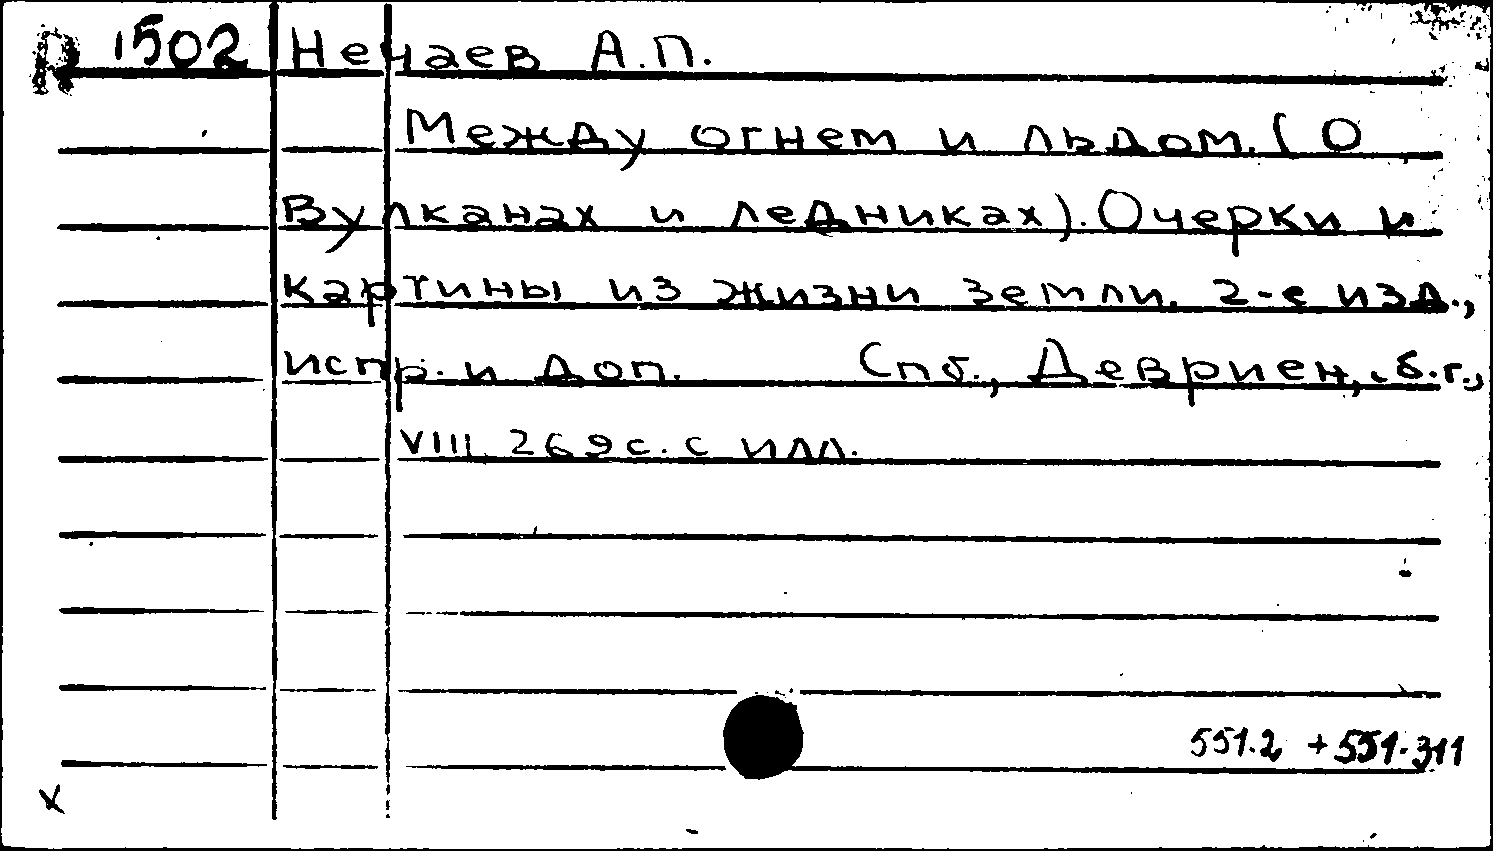 R 1502 Нечаев А.П.
Между огнем и льдом. (О
Вулканах и ледниках). Очерки и
картины из жизни земли. 2-е изд.,
испр. и доп. Спб., Девриен, б.г.,
VIII, 269 с. с илл.
551.2 + 551.311
x